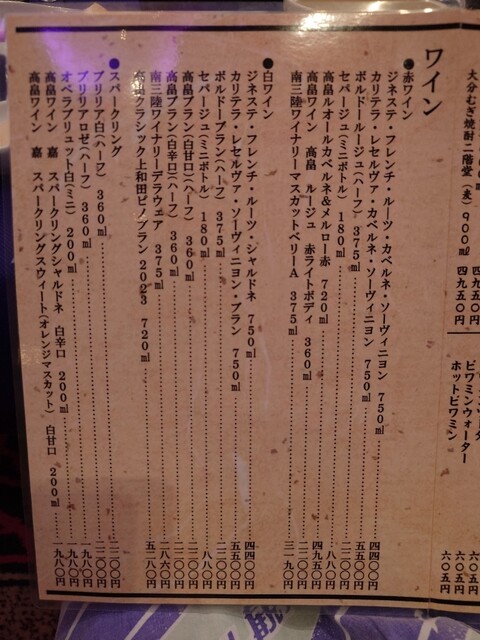 大分むぎ焼酎二階堂(麦) 900ml 四九五〇円
四九五〇円
ビワミンウォーター 六〇五円
ホットビワミン 六〇五円
ワイン
●赤ワイン
ジネステ・フレンチ・ルーツ・カベルネ・ソーヴィニヨン 750ml 四四〇〇円
カリテラ・レセルヴァ・カベルネ・ソーヴィニヨン 750ml 五五〇〇円
ボルドールージュ(ハーフ) 375ml
セパージュ(ミニボトル) 180ml
高畠ルオールカベルネ&メルロー赤 720ml
高畠ワイン 高畠 ルージュ 赤ライトボディ 360ml
南三陸ワイナリーマスカットベリーA 375ml
●白ワイン
ジネステ・フレンチ・ルーツ・シャルドネ 750ml 四四〇〇円
カリテラ・レセルヴァ・ソーヴィニヨン・ブラン 750ml 五五〇〇円
ボルドーブラン(ハーフ) 375ml
セパージュ(ミニボトル) 180ml
高畠ブラン(白甘口)(ハーフ) 360ml
高畠ブラン(白辛口)(ハーフ) 360ml
南三陸ワイナリーデラウェア 375ml
高畠クラシック上和田ピノブラン2023 720ml 五二八〇円
●スパークリング
ブリリア白(ハーフ) 360ml
ブリリアロゼ(ハーフ) 360ml
オペラブリュット白(ミニ) 200ml
高畠ワイン 嘉 スパークリングシャルドネ 白辛口 200ml 一九八〇円
高畠ワイン 嘉 スパークリングスウィート(オレンジマスカット) 白甘口 200ml 一九八〇円